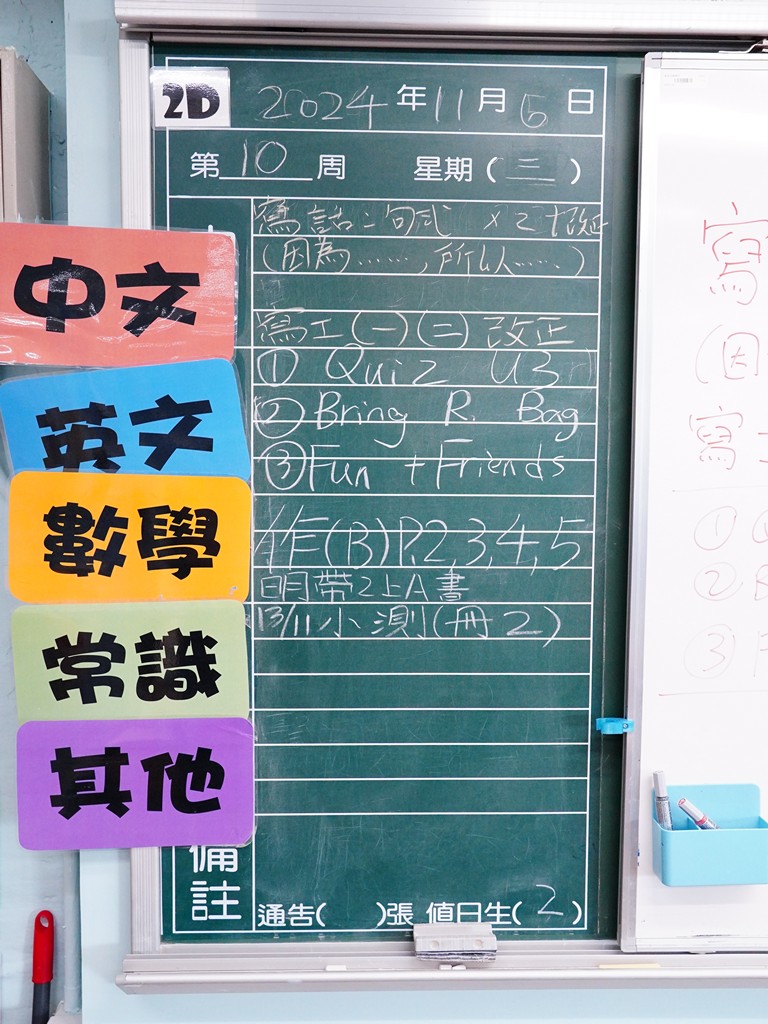 2D 2024年11月5日
第10周 星期(三)
寫話二句式 x2
(因為……,所以……)
中文
寫工(一)(二)改正
① Quiz U3
② Bring R. Bag
英文
③ Fun + Friends
數學
作(B)P.2,3,4,5
明帶2上A書
13/11小測(冊2)
常識
其他
備註
通告( )張 值日生(2)
寫
(因
寫
①
②
③